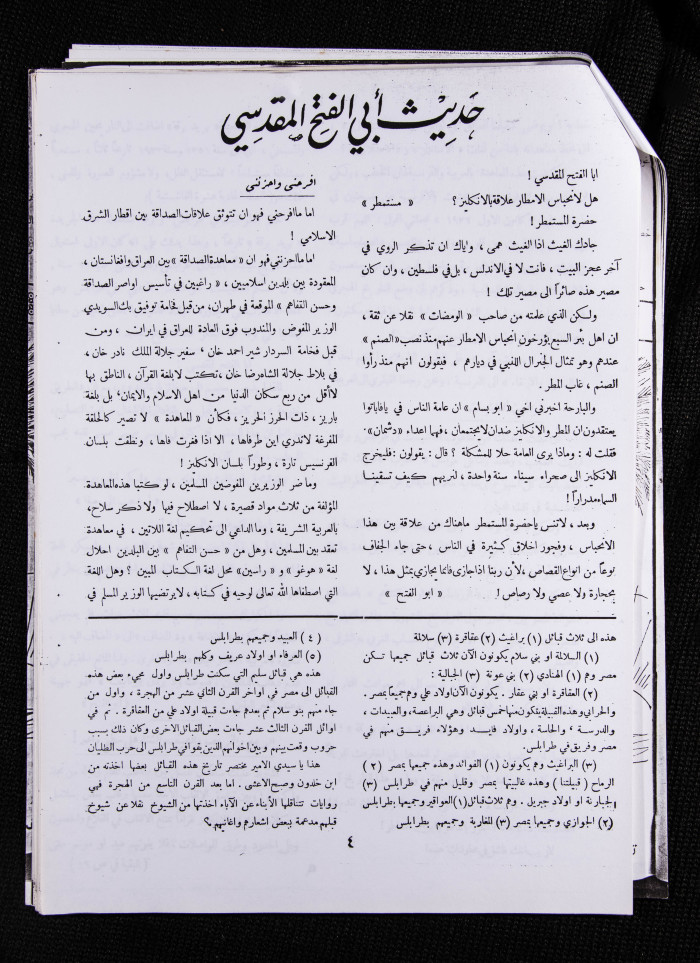 حديث أبي الفتح المقدسي
ابا الفتح المقدسي !
هل لانحباس الامطار علاقة بالانكليز ؟ « مستمطر »
حضرة المستمطر !
جادك الغيث اذا الغيث همى ، واياك ان تذكر الروي في
آخر عجز البيت ، فأنت لا في الاندلس ، بل في فلسطين ، وان كان
مصير هذه صائراً الى مصير تلك !
ولكن الذي علمته من صاحب « الومضات » نقلا عن ثقة ،
ان اهل بئر السبع يؤرخون انحباس الامطار عنهم منذ نصب « الصنم »
عندهم وهو تمثال الجنرال اللنبي في ديارهم ، فيقولون انهم منذ رأوا
الصنم ، غاب المطر .
والبارحة اخبرني اخي « ابو بسام » ان عامة الناس في يافا باتوا
يعتقدون ان المطر والانكليز ضدان لا يجتمعان ، فهما اعداء « دشمان »
فقلت له : وماذا يرى العامة حلا للمشكلة ؟ قال : يقولون : فليخرج
الانكليز الى صحراء سيناء سنة واحدة ، لنريهم كيف تسقينا
السماء مدراراً !
وبعد ، لا تنس يا حضرة المستمطر ما هناك من علاقة بين هذا
الانحباس ، وفجور اخلاق كثيرة في الناس ، حتى جاء الجفاف
نوعاً من انواع القصاص ، لأن ربنا اذا جازى فانما يجازي بمثل هذا ، لا
بحجارة ولا عصي ولا رصاص ! « ابو الفتح »
افرحني واحزنني
اما ما افرحني فهو ان تتوثق علاقات الصداقة بين اقطار الشرق
الاسلامي !
اما ما احزنني فهو ان « معاهدة الصداقة » بين العراق وافغانستان ،
المعقودة بين بلدين اسلاميين ، « راغبين في تأسيس اواصر الصداقة
وحسن التفاهم » الموقعة في طهران ، من قبل فخامة توفيق بك السويدي
الوزير المفوض والمندوب فوق العادة للعراق في ايران ، ومن
قبل فخامة السردار شير احمد خان ، سفير جلالة الملك نادر خان ،
في بلاط جلالة الشاه رضا خان ، تكتب لا بلغة القرآن ، الناطق بها
لا أقل من ربع سكان الدنيا من اهل الاسلام والايمان ، بل بلغة
باريز ، ذات الحرز الحريز ، فكأن « المعاهدة » لا تصير كالحلقة
المفرغة لا تدري اين طرفاها ، الا اذا فغرت فاها ، ونطقت بلسان
الفرنسيس تارة ، وطوراً بلسان الانكليز !
وما ضر الوزيرين المفوضين المسلمين ، لو كتبا هذه المعاهدة
المؤلفة من ثلاث مواد قصيرة ، لا اصطلاح فيها ولا ذكر سلاح ،
بالعربية الشريفة ، وما الداعي الى تحكيم لغة اللاتين ، في معاهدة
تعقد بين المسلمين ، وهل من « حسن التفاهم » بين البلدين احلال
لغة « هوغو » و « راسين » محل لغة الكتاب المبين ؟ وهل اللغة
التي اصطفاها الله تعالى لوحيه في كتابه ، لا يرتضيها الوزير المسلم في
هذه الى ثلاث قبائل (١) براغيث (٢) عقاقرة (٣) سلالة
(١) السلالة او بني سلام يكونون الآن ثلاث قبائل جميعها تسكن
مصر وم (١) الهنادي (٢) بني عونة (٣) الجبالية :
(٢) العقاقرة او بني عقار . يكونون الآن اولاد علي وم جميعاً بمصر .
والحرابي وهذه القبيلة يتكون منها خمس قبائل وهي البراعصة ، والعبيدات ،
والدرسة ، والحاسة ، واولاد فايد وهؤلاء فريق منهم في
مصر وفريق في طرابلس .
(٣) البراغيث وم يكونون (١) الفوائد وهذه جميعها بمصر (٢)
الرماح ( قبيلتنا ) وهذه غالبيتها بمصر وقليل منهم في طرابلس (٣)
الجبارنة او اولاد جبريل . وم ثلاث قبائل (١) العواقير وجميعها بطرابلس
(٢) الجوازي وجميعها بمصر (٣) المغاربة وجميعهم بطرابلس
(٤) العبيد وجميعهم بطرابلس
(٥) العرفاء او اولاد عريف وكلهم بطرابلس
هذه هي قبائل سليم التي سكنت طرابلس واول مجيء بعض هذه
القبائل الى مصر في اواخر القرن الثاني عشر من الهجرة ، واول من
جاء منهم بنو سلام ثم بعدم جاءت قبيلة اولاد علي من العقاقرة . ثم في
اوائل القرن الثالث عشر جاءت بعض القبائل الاخرى وكان ذلك بسبب
حروب وقعت بينهم وبين اخوانهم الذين بقوا في طرابلس الى حرب الطليان
هذا يا سيدي الامير مختصر تاريخ هذه القبائل بعضها اخذته من
ابن خلدون وصبح الاعشى . اما بعد القرن التاسع من الهجرة فهي
روايات تتناقلها الأبناء عن الآباء اخذتها من الشيوخ نقلا عن شيوخ
قبلهم مدعمة ببعض اشعارم واغانيهم .
٤